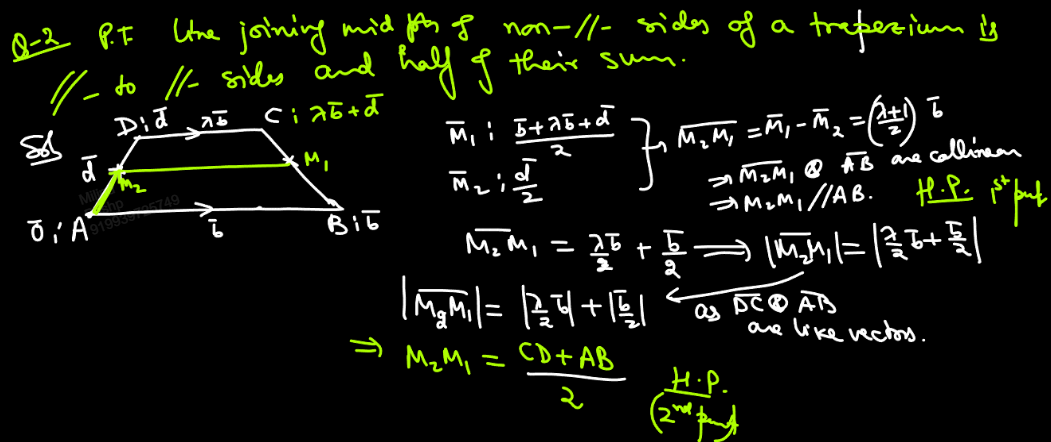 Q-2 P.T line joining mid pts of non-//- sides of a trapezium is
//- to //- sides and half of their sum.
Sol
D: d̄ λb̄ C: λb̄+d̄
d̄ M₂ M₁
ō: A b̄ B: b̄
M̄₁ : (b̄+λb̄+d̄)/2
M̄₂ : d̄/2
M̄₂M̄₁ = M̄₁ - M̄₂ = ((λ+1)/2) b̄
⇒ M̄₂M̄₁ & ĀB̄ are collinear
⇒ M₂M₁ // AB. H.P. 1st part
M̄₂M̄₁ = λb̄/2 + b̄/2 ⟹ |M̄₂M̄₁| = |λ/2 b̄ + b̄/2|
|M̄₂M̄₁| = |λ/2 b̄| + |b̄/2| as D̄C̄ & ĀB̄
are like vectors.
⇒ M₂M₁ = (CD+AB)/2 H.P.
(2nd part)